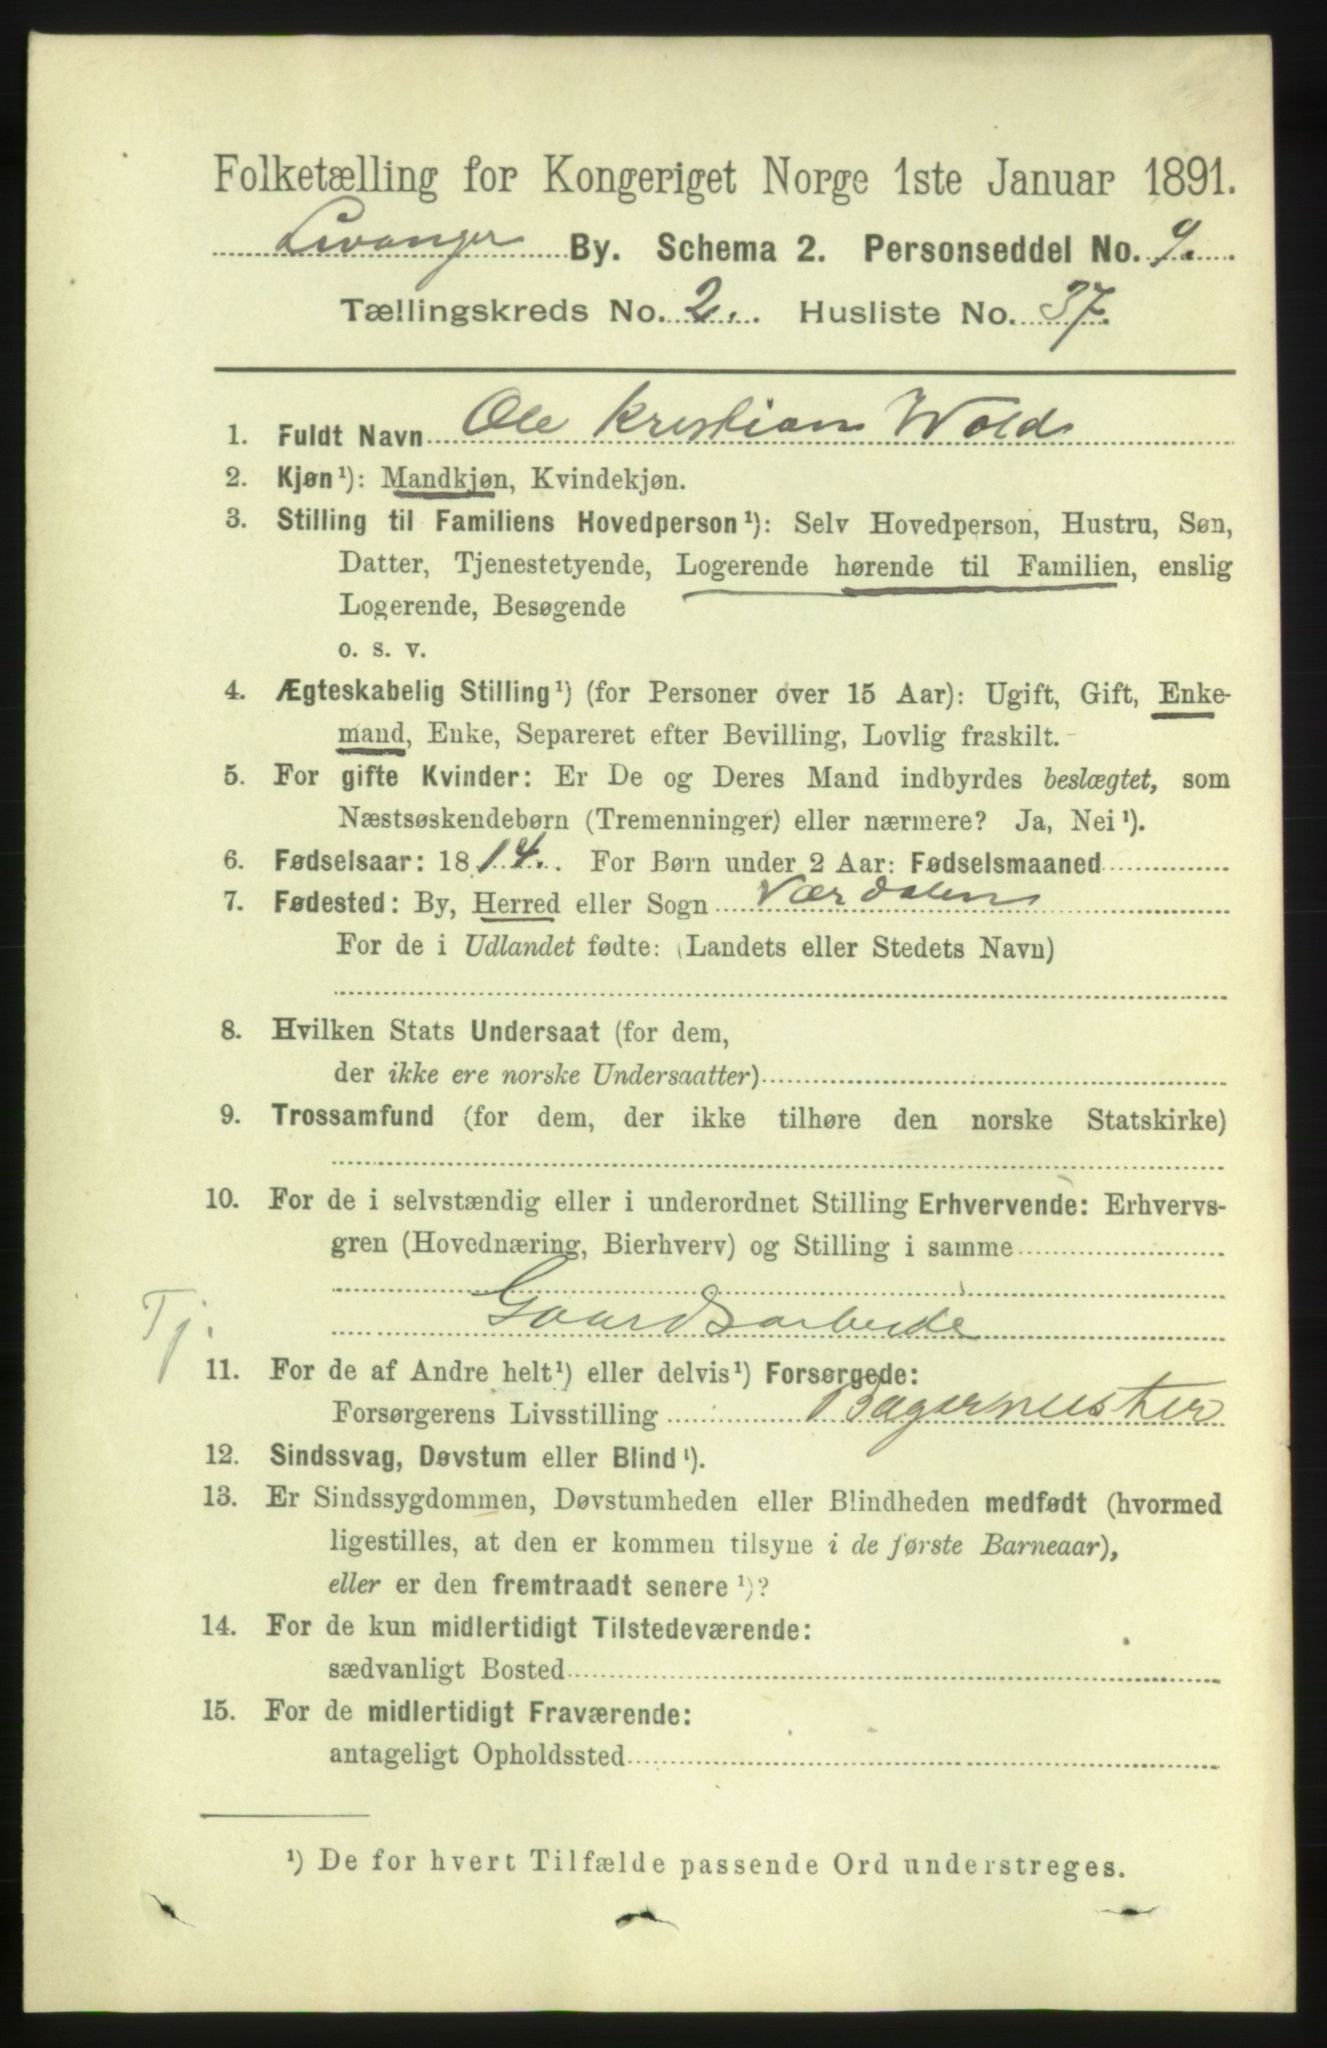 Folketælling for Kongeriget Norge 1ste Januar 1891.
Levanger By. Schema 2. Personseddel No. 9.
Tællingskreds No. 2. Husliste No. 37.
1. Fuldt Navn Ole Kristian Wold
2. Kjøn¹): Mandkjøn, Kvindekjøn.
3. Stilling til Familiens Hovedperson¹): Selv Hovedperson, Hustru, Søn,
Datter, Tjenestetyende, Logerende hørende til Familien, enslig
Logerende, Besøgende
o. s. v.
4. Ægteskabelig Stilling¹) (for Personer over 15 Aar): Ugift, Gift, Enke-
mand, Enke, Separeret efter Bevilling, Lovlig fraskilt.
5. For gifte Kvinder: Er De og Deres Mand indbyrdes beslægtet, som
Næstsøskendebørn (Tremenninger) eller nærmere? Ja, Nei¹).
6. Fødselsaar: 1814. For Børn under 2 Aar: Fødselsmaaned
7. Fødested: By, Herred eller Sogn Værdalen
For de i Udlandet fødte: (Landets eller Stedets Navn)
8. Hvilken Stats Undersaat (for dem,
der ikke ere norske Undersaatter)
9. Trossamfund (for dem, der ikke tilhøre den norske Statskirke)
10. For de i selvstændig eller i underordnet Stilling Erhvervende: Erhvervs-
gren (Hovednæring, Bierhverv) og Stilling i samme
Gaardsarbeide
Tj.
11. For de af Andre helt¹) eller delvis¹) Forsørgede:
Forsørgerens Livsstilling Bagermester
12. Sindssvag, Døvstum eller Blind¹).
13. Er Sindssygdommen, Døvstumheden eller Blindheden medfødt (hvormed
ligestilles, at den er kommen tilsyne i de første Barneaar),
eller er den fremtraadt senere¹)?
14. For de kun midlertidigt Tilstedeværende:
sædvanligt Bosted
15. For de midlertidigt Fraværende:
antageligt Opholdssted
¹) De for hvert Tilfælde passende Ord understreges.